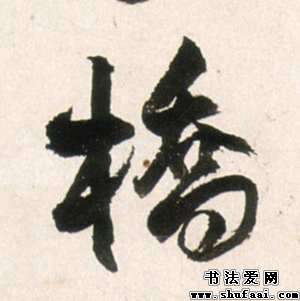 橋
书法爱网
www.shufaai.com